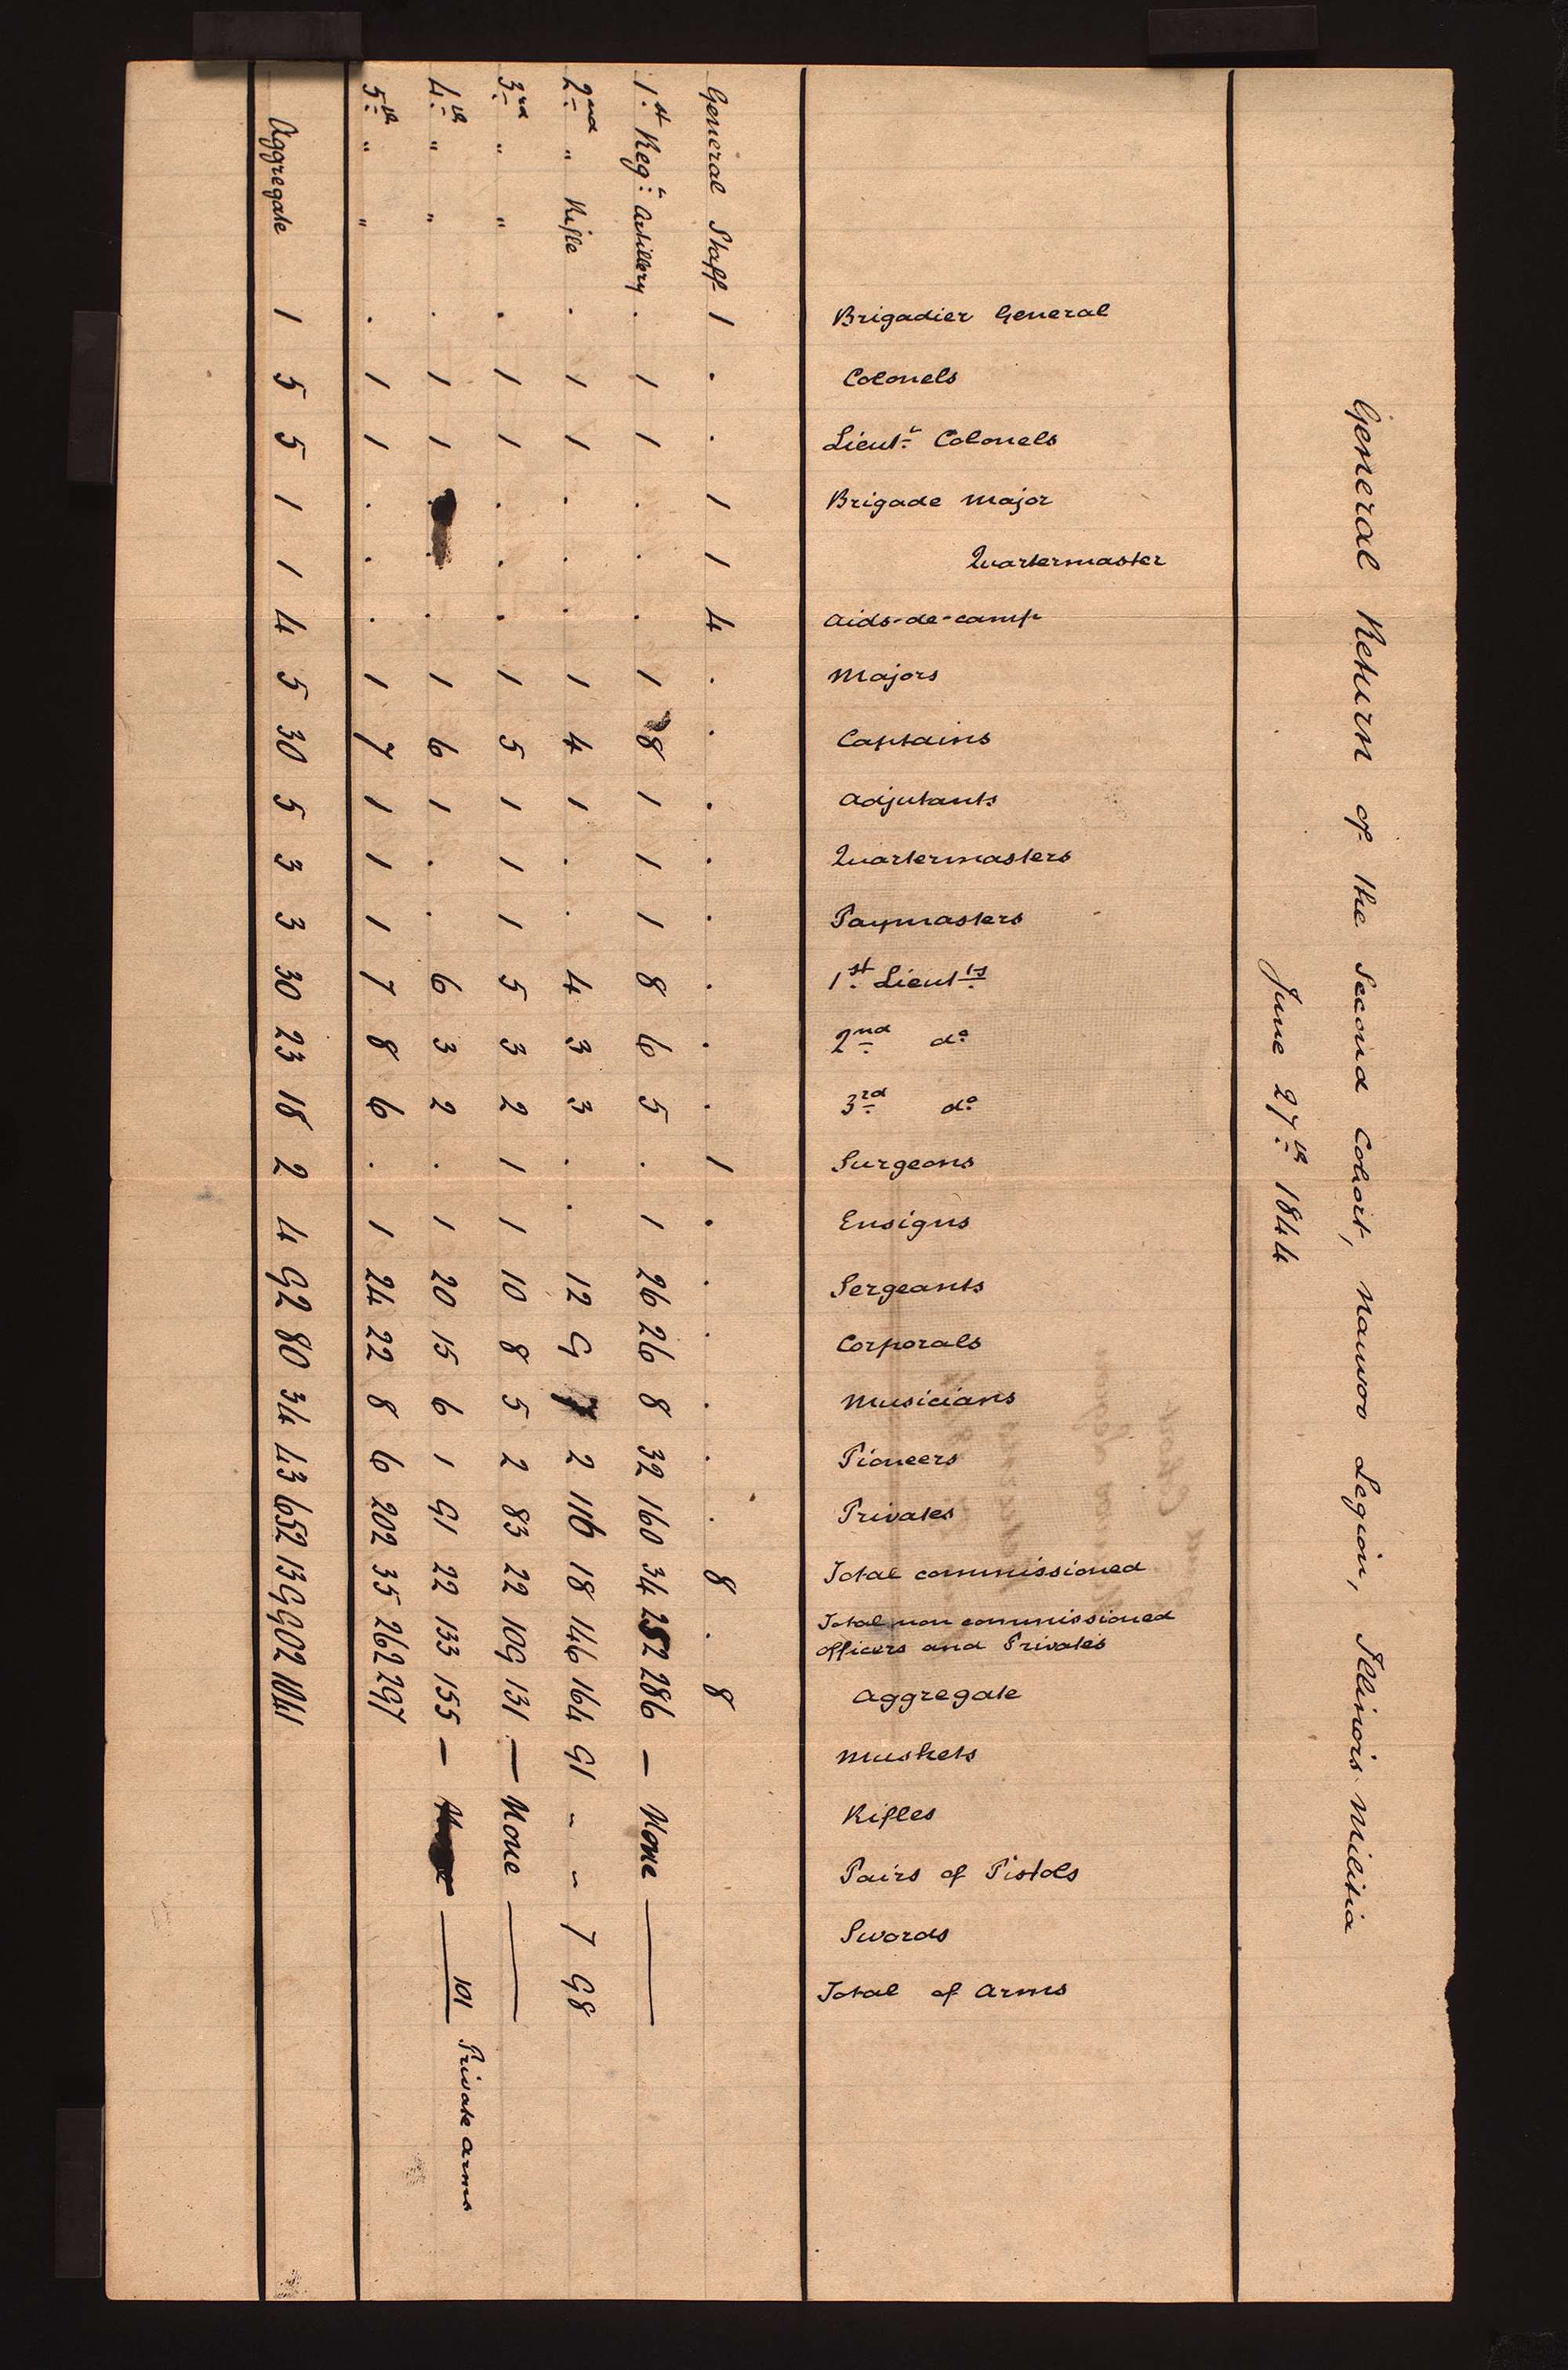 General Return of the Second Cohort, Nauvoo Legion, Illinois Militia
June 27th 1844
Brigadier General
Colonels
Lieut. Colonels
Brigade Major
Quartermaster
Aids-de-camp
Majors
Captains
Adjutants
Quartermasters
Paymasters
1st Lieuts
2nd do
3rd do
Surgeons
Ensigns
Sergeants
Corporals
Musicians
Pioneers
Privates
Total commissioned
Total non commissioned
officers and Privates
Aggregate
Muskets
Rifles
Pairs of Pistols
Swords
Total of Arms
General Staff 1 . . 1 1 4 . . . . . . . . 1 . . . . . . 8 . 8
1st Regt Artillery . 1 1 . . . 1 8 1 1 1 8 6 5 . 1 26 26 8 32 160 34 252 286 — None —
2nd " Rifle . 1 1 . . . 1 4 1 . . 4 3 3 . . 12 9 7 2 116 18 146 164 91 - - 7 98
3rd " " . 1 1 . . . 1 5 1 1 1 5 3 2 1 1 10 8 5 2 83 22 109 131 — None —
4th " " . 1 1 . . . 1 6 1 . . 6 3 2 . 1 20 15 6 1 91 22 133 155 — — 101 Private arms
5th " " . 1 1 . . . 1 7 1 1 1 7 8 6 . 1 24 22 8 6 202 35 262 297
Aggregate 1 5 5 1 1 4 5 30 5 3 3 30 23 18 2 4 92 80 34 43 652 139 902 1041